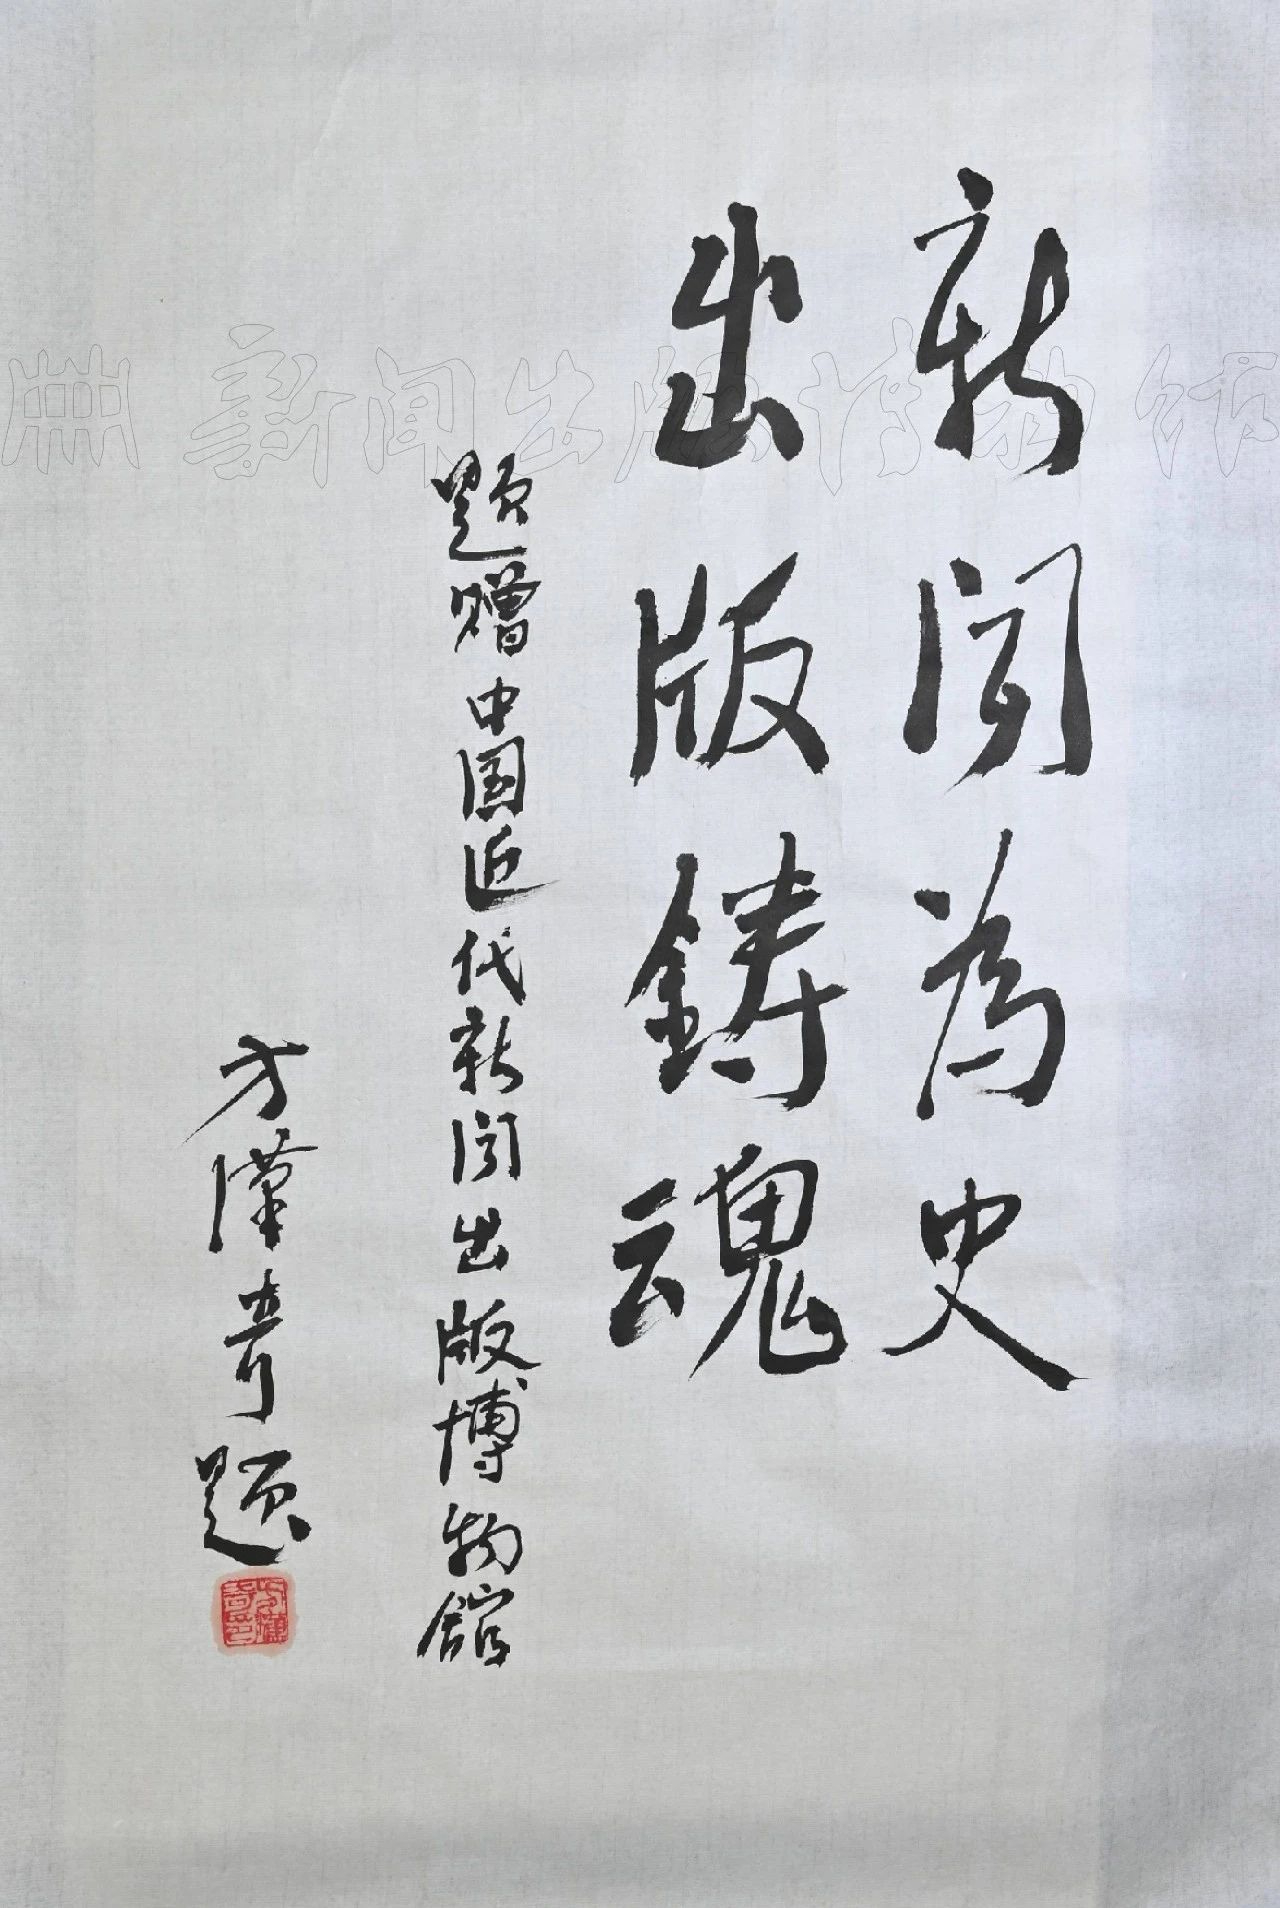 新闻为史
出版鑄魂
题赠中国近代新闻出版博物館
方漢奇题
新闻出版博物馆